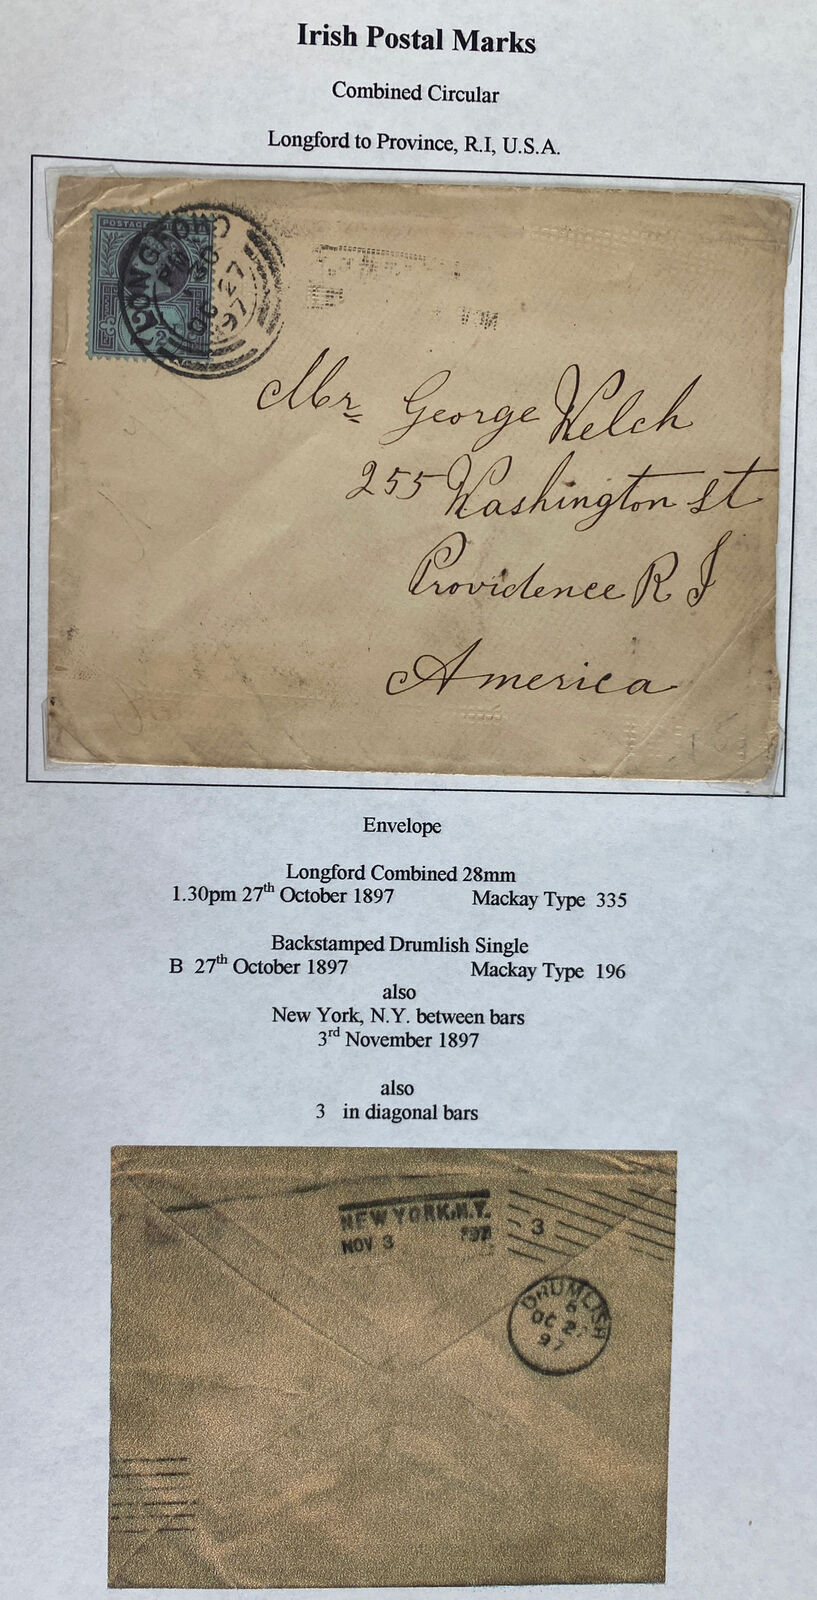 Irish Postal Marks
Combined Circular
Longford to Province, R.I, U.S.A.
POSTAGE
LONGFORD
PM
30
OC 27
97
Mr George Welch
255 Washington St
Providence R I
America
Envelope
Longford Combined 28mm
1.30pm 27th October 1897 Mackay Type 335
Backstamped Drumlish Single
B 27th October 1897 Mackay Type 196
also
New York, N.Y. between bars
3rd November 1897
also
3 in diagonal bars
NEW YORK, N.Y.
NOV 3
3
DRUMLISH
OC 27
97